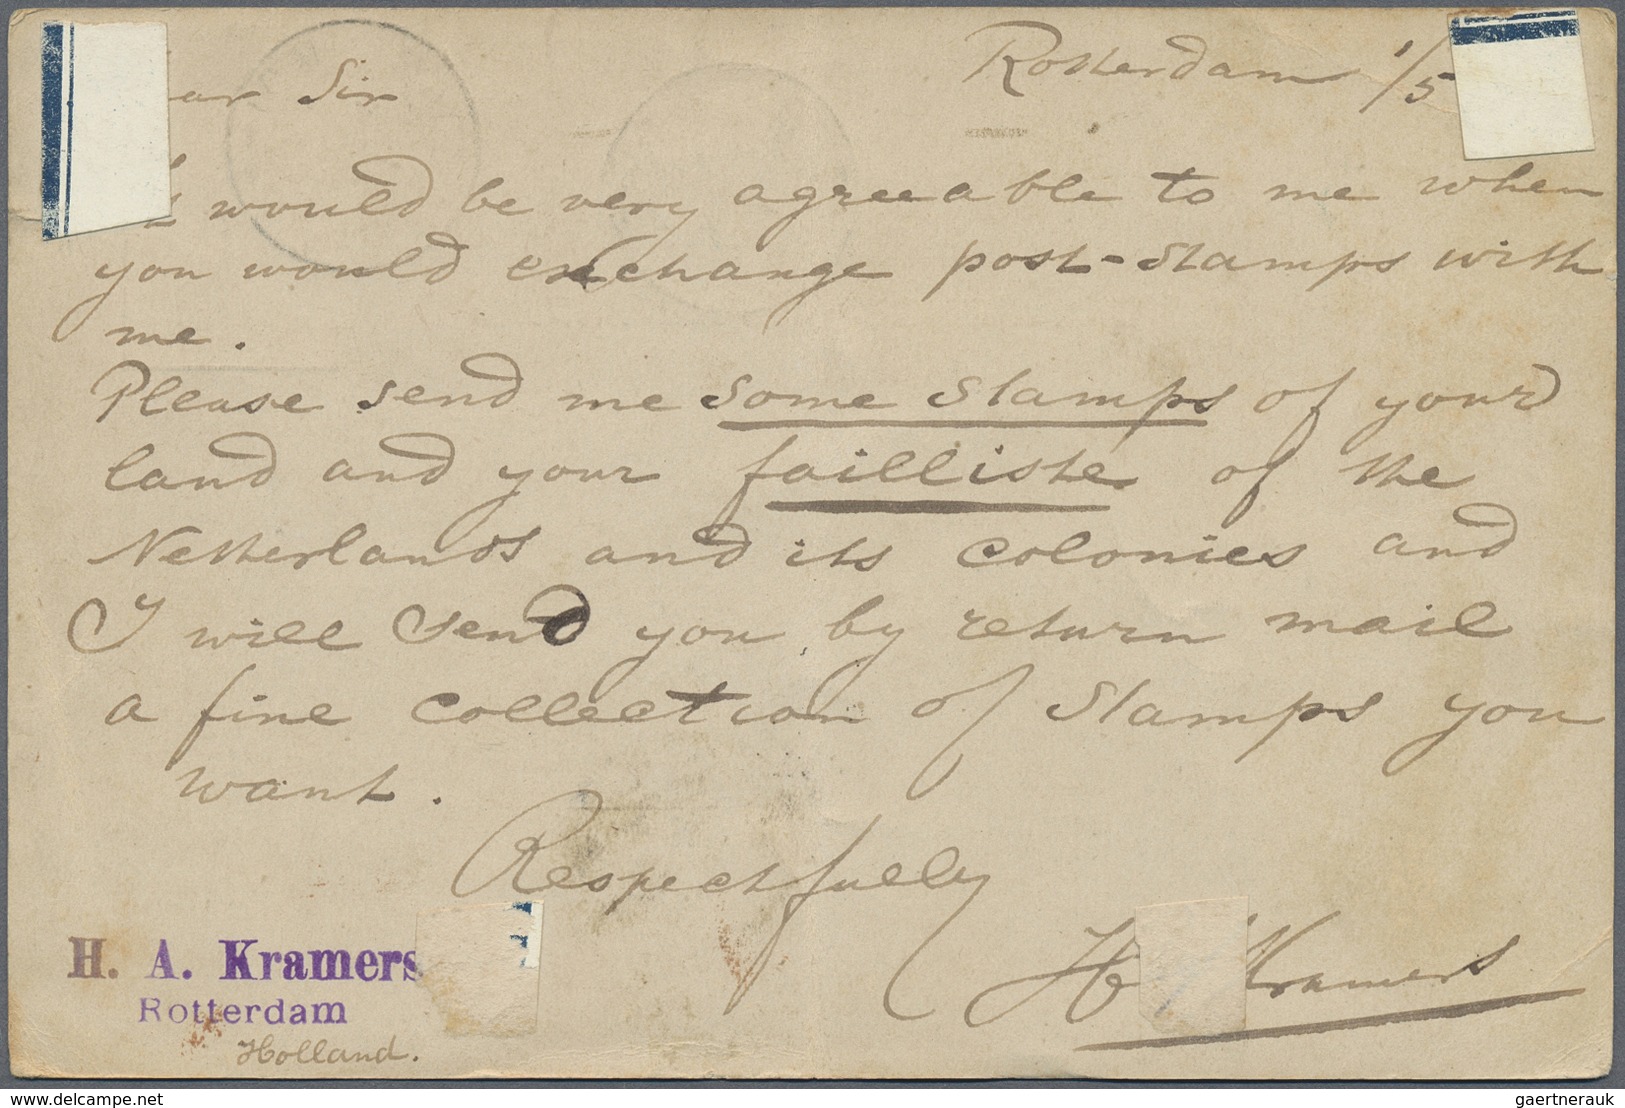 Rotterdam 1/5
Sir
would be very agreeable to me when
you would exchange post-stamps with
me.
Please send me some stamps of your
land and your failliste of the
Netherlands and its colonies and
I will send you by return mail
a fine collection of stamps you
want.
Respectfully
H Kramers
H. A. Kramers
Rotterdam
Holland.
www.delcampe.net
gaertnerauk